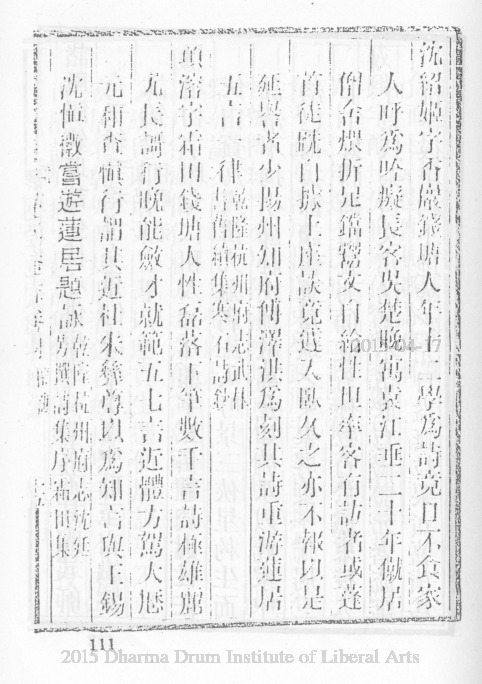 沈紹姬字香巖錢塘人年十二學為詩竟日不食家
人呼為吟癡長客吳楚晚寓袁江垂二十年僦居
僧舍煨折足鐺鬻文自給性坦率客有訪者或蓬
首徒跣白據上座談竟送人臥久之亦不報以是
延譽者少揚州知府傅澤洪為刻其詩重游蓮居
五言一律乾隆杭州府志武林
耆舊續集寒石詩鈔
項溶字霜田錢塘人性磊落下筆數千言詩極雄麗
尤長謌行晚能斂才就範五七言近體方駕大厯
元和查慎行謂其近社朱彝尊以為知言與王錫
沈恒徵嘗遊蓮居題詠乾隆杭州府志沈廷
芳撰詩集序霜田集
111
2015-04-17
2015 Dharma Drum Institute of Liberal Arts